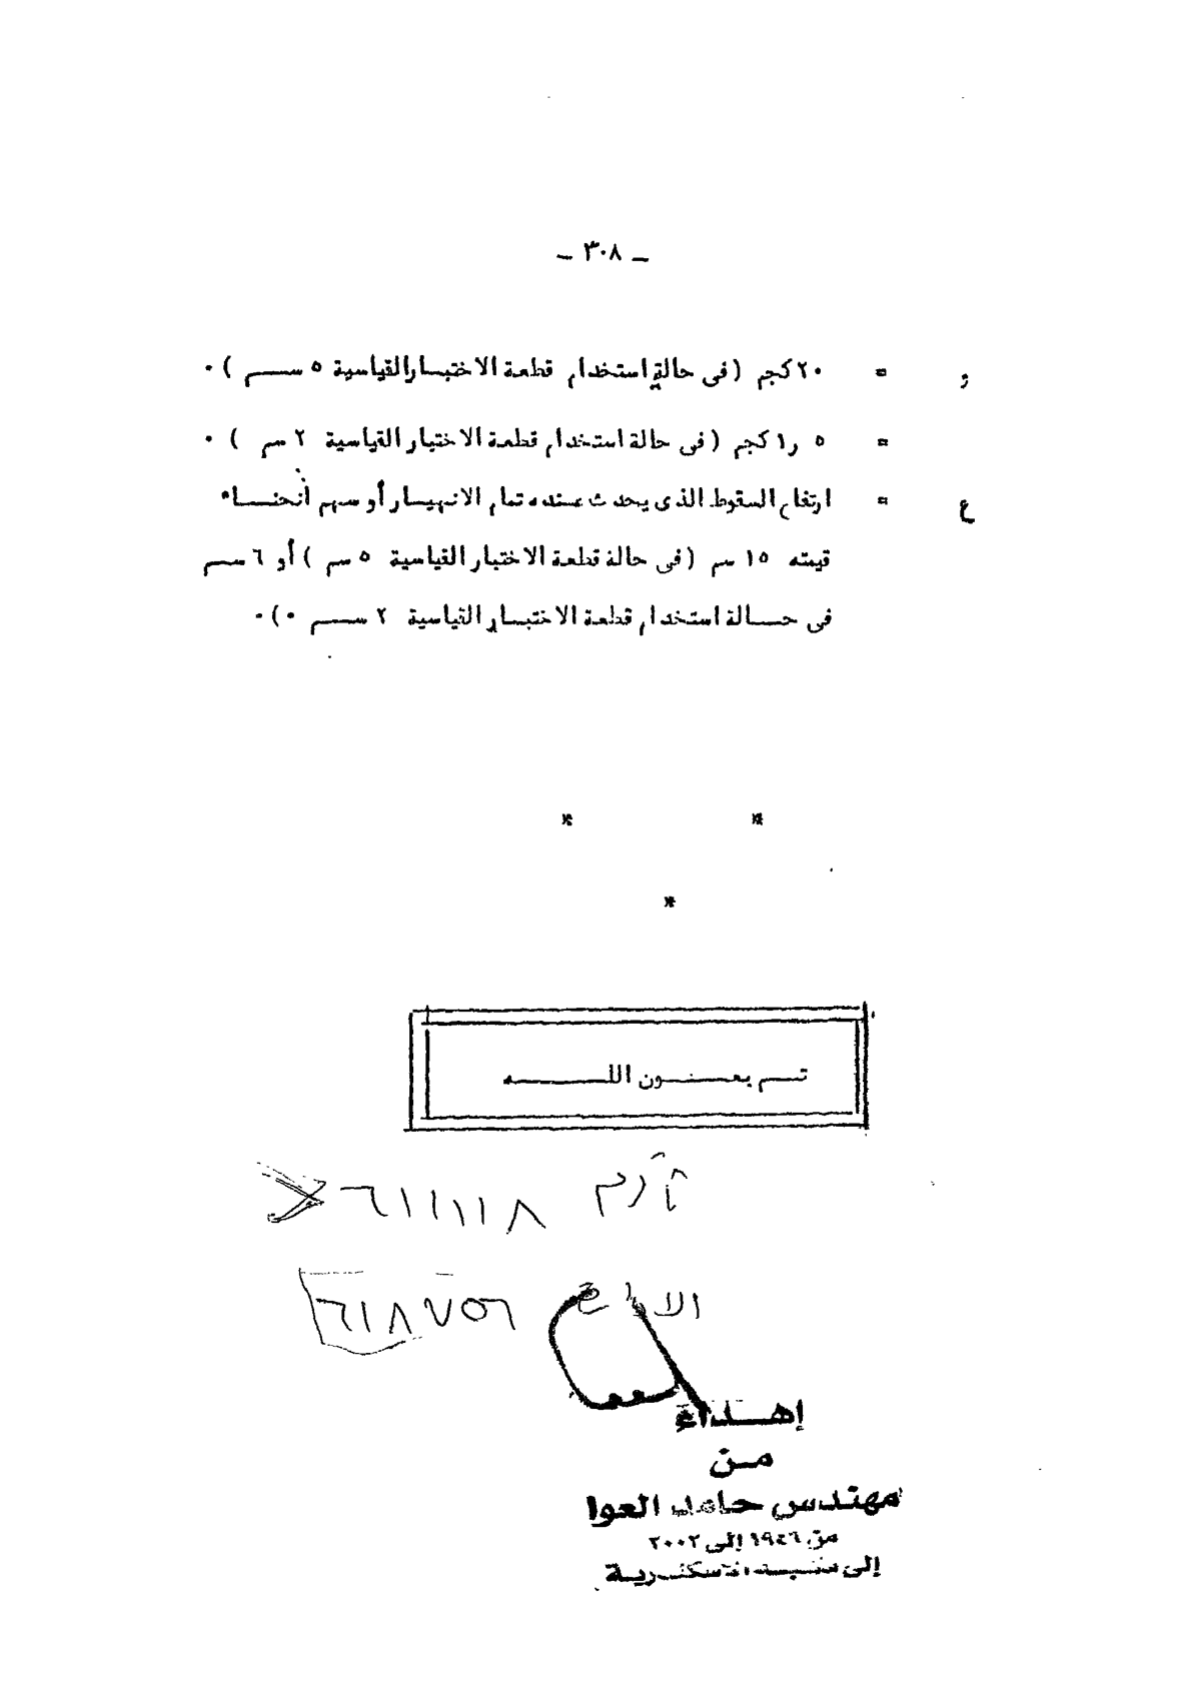 ــ ٣٠٨ ــ
و = ٢٠ كجم (فى حالة استخدام قطعة الاختبـار القياسية ٥ ســـم ) ٠
= ٥ ر١ كجم (فى حالة استخدام قطعة الاختبار القياسية ٢ سم ) ٠
ع = ارتفاع السقوط الذى يحدث عنده تمام الانهيـار أو سهم انحنـاء
قيمته ١٥ سم (فى حالة قطعة الاختبار القياسية ٥ سم ) أو ٦ سـم
فى حــالة استخدام قطعة الاختبـار القياسية ٢ ســم ٠) ٠
* *
*
تــم بعــون اللــــه
٦١١١١٨
٦١٨٧٥٦
إهــداء
مـن
مهندس حامد العوا
من ١٩٤٦ إلى ٢٠٠٢
إلى الاسكندرية